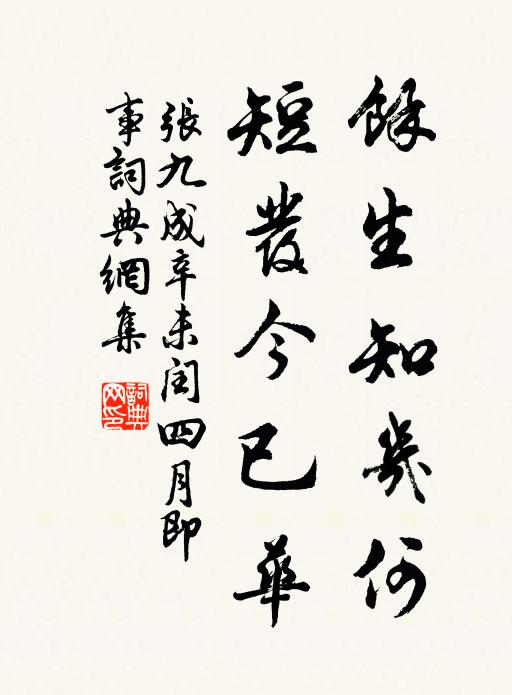 餘生知幾何
短發今已華
張九成辛未閏四月即
事詞典網集
詞典
网印